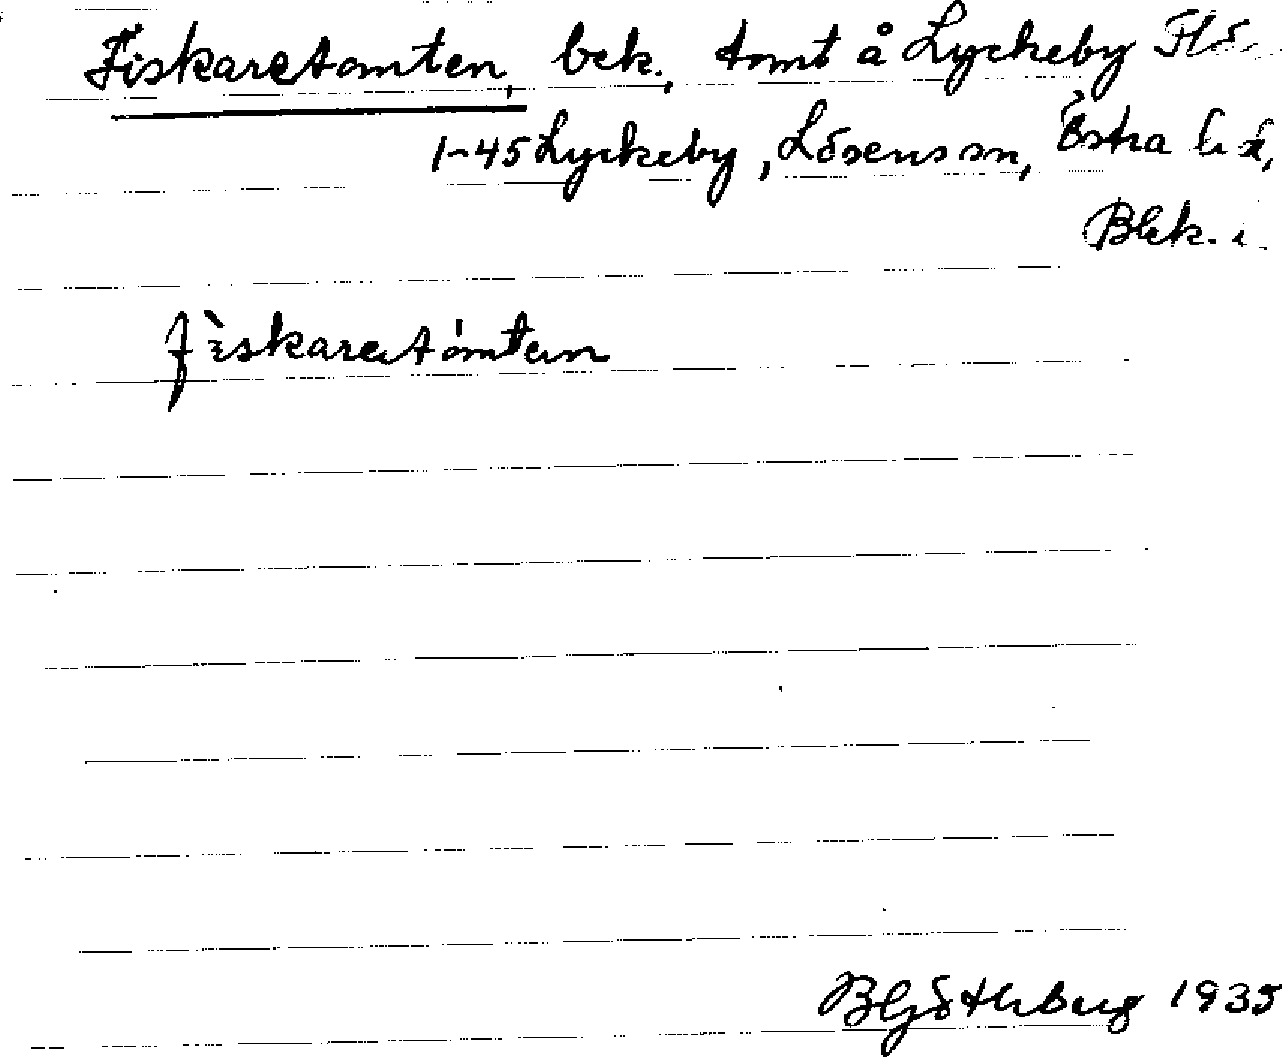 Fiskaretomten, bek., tomt å Lyckeby
1-45 Lyckeby, Lösens sn, Östra hd,
Blek. l.
fìskaretómten
BGöthberg 1935